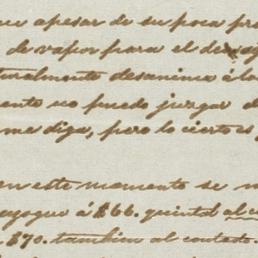 que apesar de su poca pr
de vapor para el des
turalmente desanima á lo
ento no puedo juzgar d
me diga, pero lo cierto es
en este momento se
á $66. quintal al c
$70. tambien al contado.